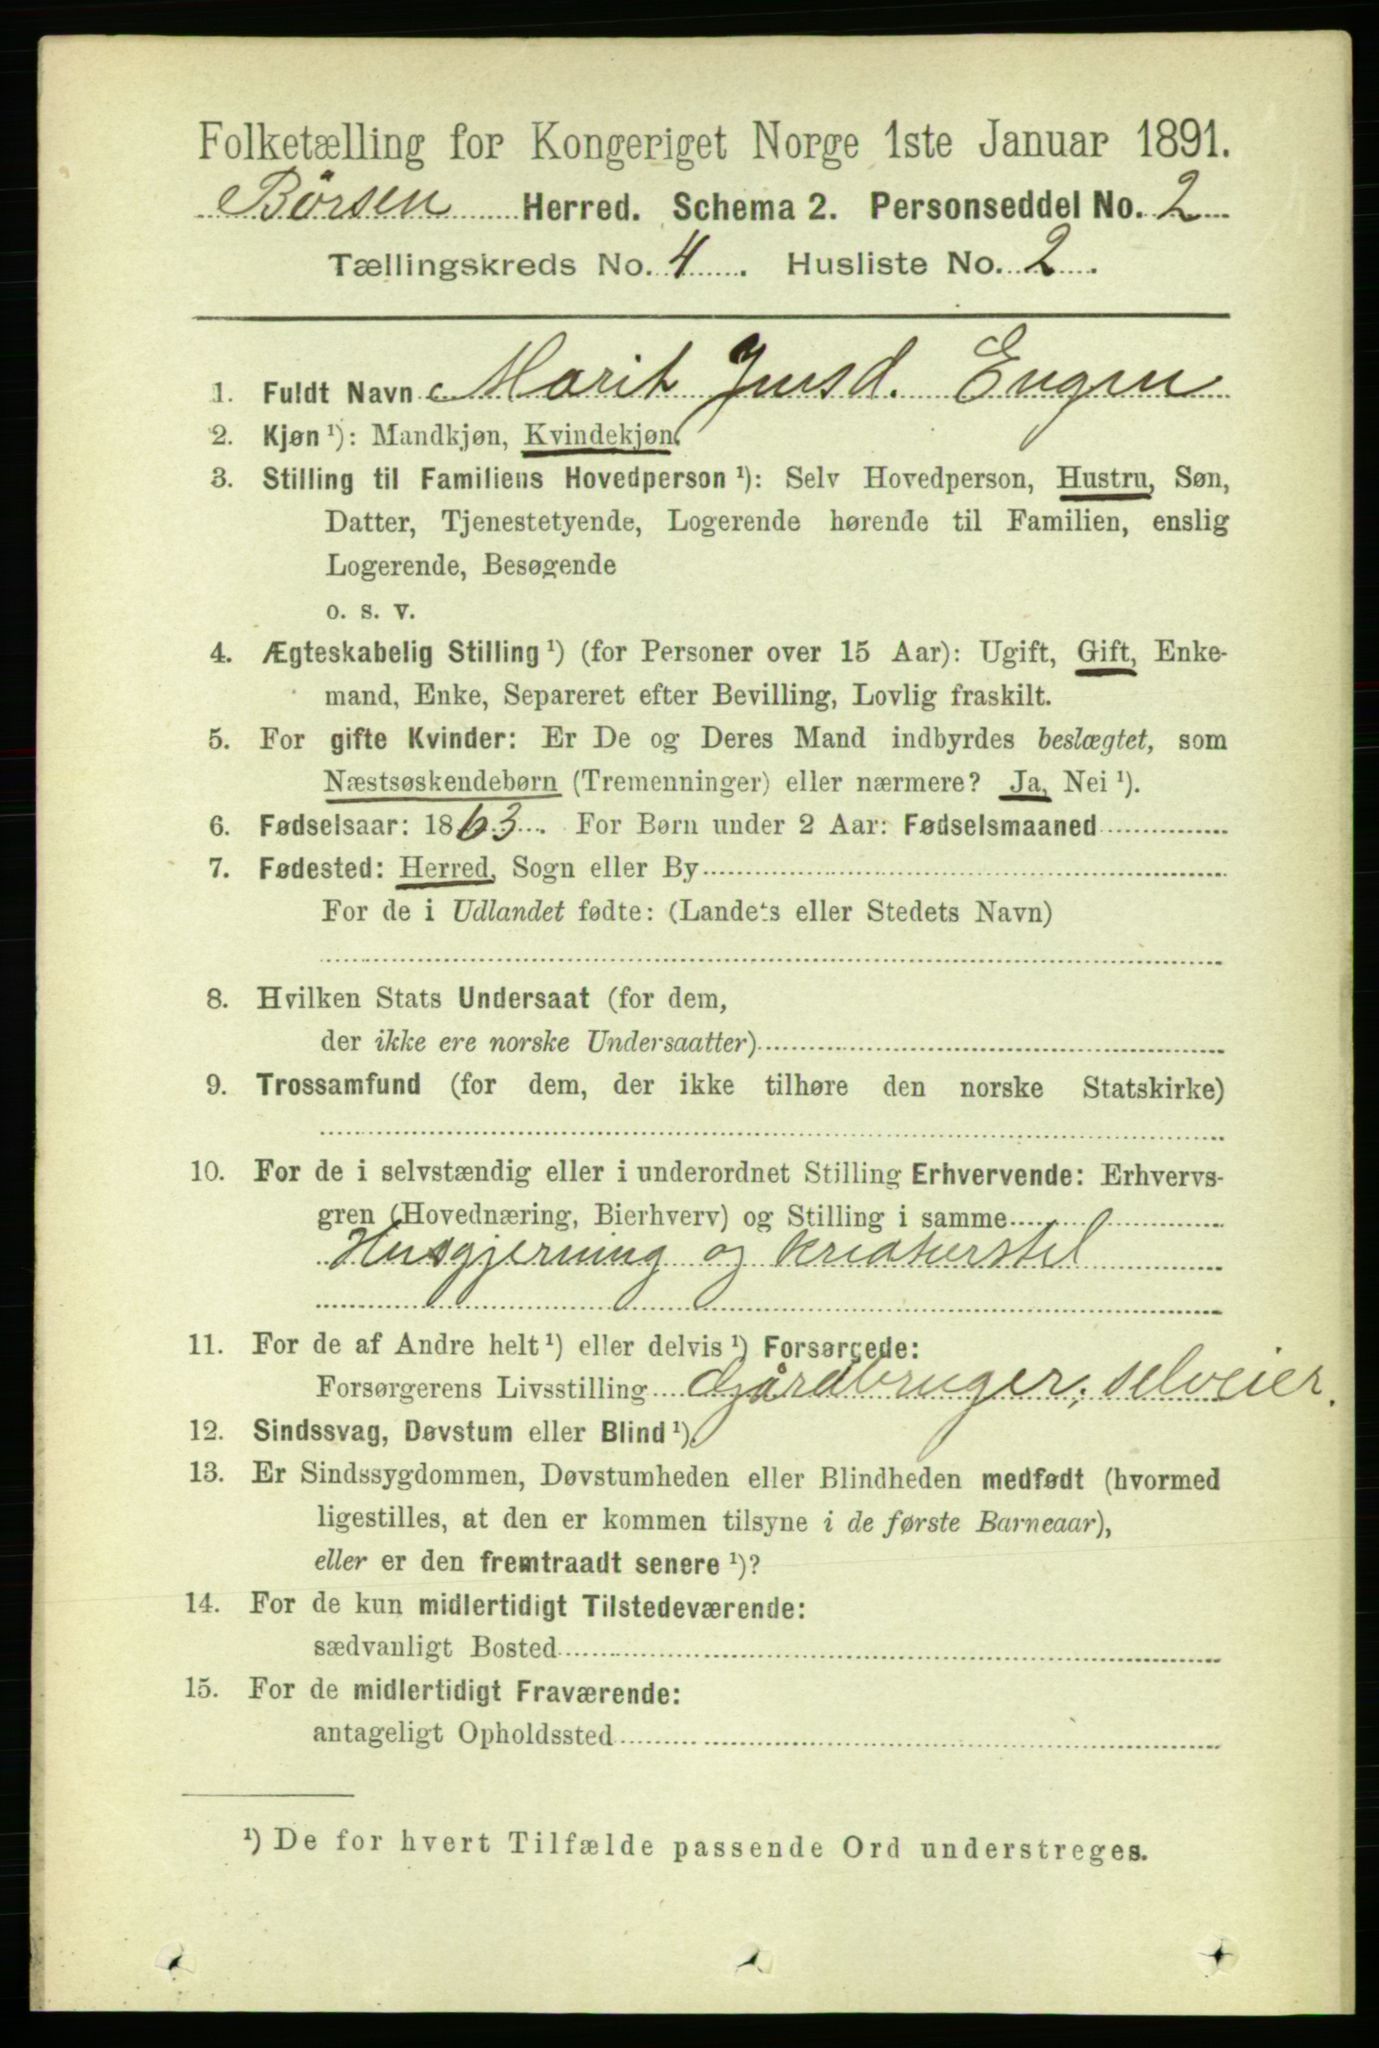 Folketælling for Kongeriget Norge 1ste Januar 1891.
Börsen Herred. Schema 2. Personseddel No. 2
Tællingskreds No. 4. Husliste No. 2.
1. Fuldt Navn Marit Jensd. Engen
2. Kjøn¹): Mandkjøn, Kvindekjøn.
3. Stilling til Familiens Hovedperson¹): Selv Hovedperson, Hustru, Søn,
Datter, Tjenestetyende, Logerende hørende til Familien, enslig
Logerende, Besøgende
o. s. v.
4. Ægteskabelig Stilling¹) (for Personer over 15 Aar): Ugift, Gift, Enke-
mand, Enke, Separeret efter Bevilling, Lovlig fraskilt.
5. For gifte Kvinder: Er De og Deres Mand indbyrdes beslægtet, som
Næstsøskendebørn (Tremenninger) eller nærmere? Ja, Nei¹).
6. Fødselsaar: 1863. For Børn under 2 Aar: Fødselsmaaned
7. Fødested: Herred, Sogn eller By
For de i Udlandet fødte: (Landets eller Stedets Navn)
8. Hvilken Stats Undersaat (for dem,
der ikke ere norske Undersaatter)
9. Trossamfund (for dem, der ikke tilhøre den norske Statskirke)
10. For de i selvstændig eller i underordnet Stilling Erhvervende: Erhvervs-
gren (Hovednæring, Bierhverv) og Stilling i samme
Husgjerning og kreaturstel
11. For de af Andre helt¹) eller delvis¹) Forsørgede:
Forsørgerens Livsstilling Gjårdbruger, selveier.
12. Sindssvag, Døvstum eller Blind¹).
13. Er Sindssygdommen, Døvstumheden eller Blindheden medfødt (hvormed
ligestilles, at den er kommen tilsyne i de første Barneaar),
eller er den fremtraadt senere¹)?
14. For de kun midlertidigt Tilstedeværende:
sædvanligt Bosted
15. For de midlertidigt Fraværende:
antageligt Opholdssted
¹) De for hvert Tilfælde passende Ord understreges.